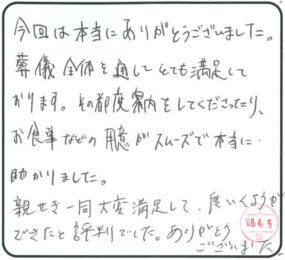 今回は本当にありがとうございました。
葬儀全体を通してとても満足して
おります。その都度案内をしてくださったり、
お食事などの用意がスムーズで本当に
助かりました。
親せき一同大変満足して、良いくようが
できたと評判でした。ありがとう
ございました